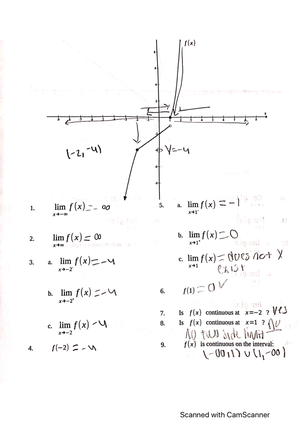 f(x)
(-2, -4)
Y=-4
1. lim f(x) = - ∞
x→-∞
2. lim f(x) = ∞
x→∞
3. a. lim f(x) = -4
x→-2⁻
b. lim f(x) = -4
x→-2⁺
c. lim f(x) -4
x→-2
4. f(-2) = -4
5. a. lim f(x) = -1
x→1⁻
b. lim f(x) = 0
x→1⁺
c. lim f(x) = does not X
x→1 exist
6. f(1) = 0 ✓
7. Is f(x) continuous at x=-2 ? Yes
8. Is f(x) continuous at x=1 ? No
No two side limit
9. f(x) is continuous on the interval:
(-∞,1) ∪ (1,-∞)
Scanned with CamScanner